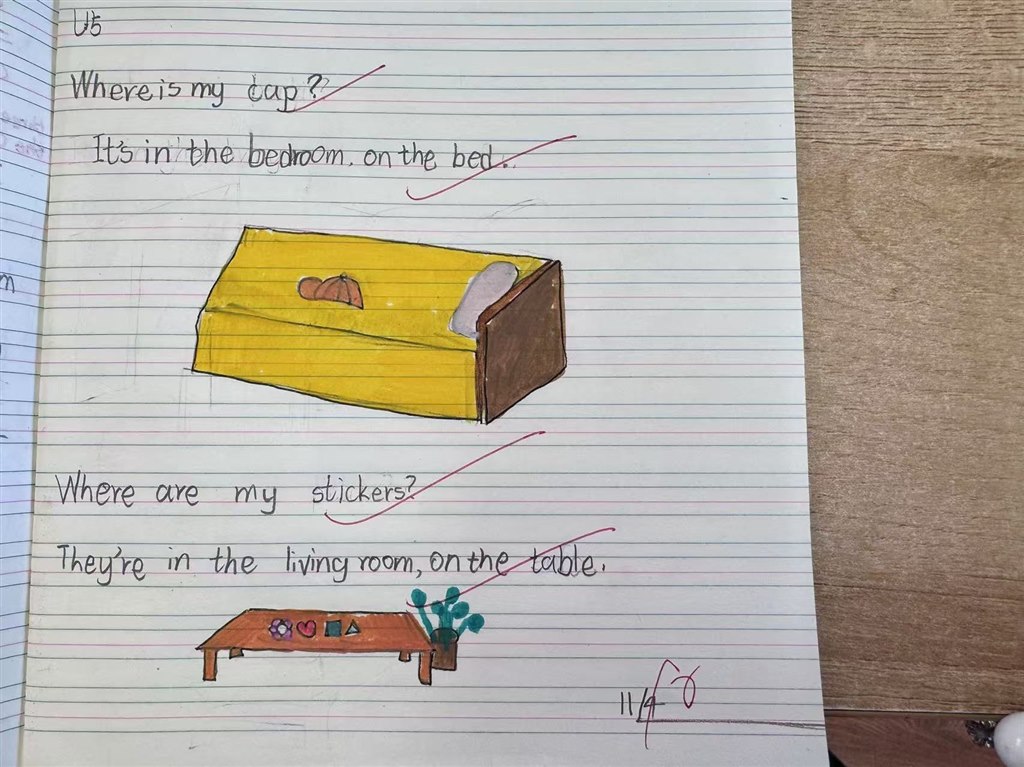 U5
Where is my cap?
It's in the bedroom. on the bed.
Where are my stickers?
They're in the living room, on the table.
11/4